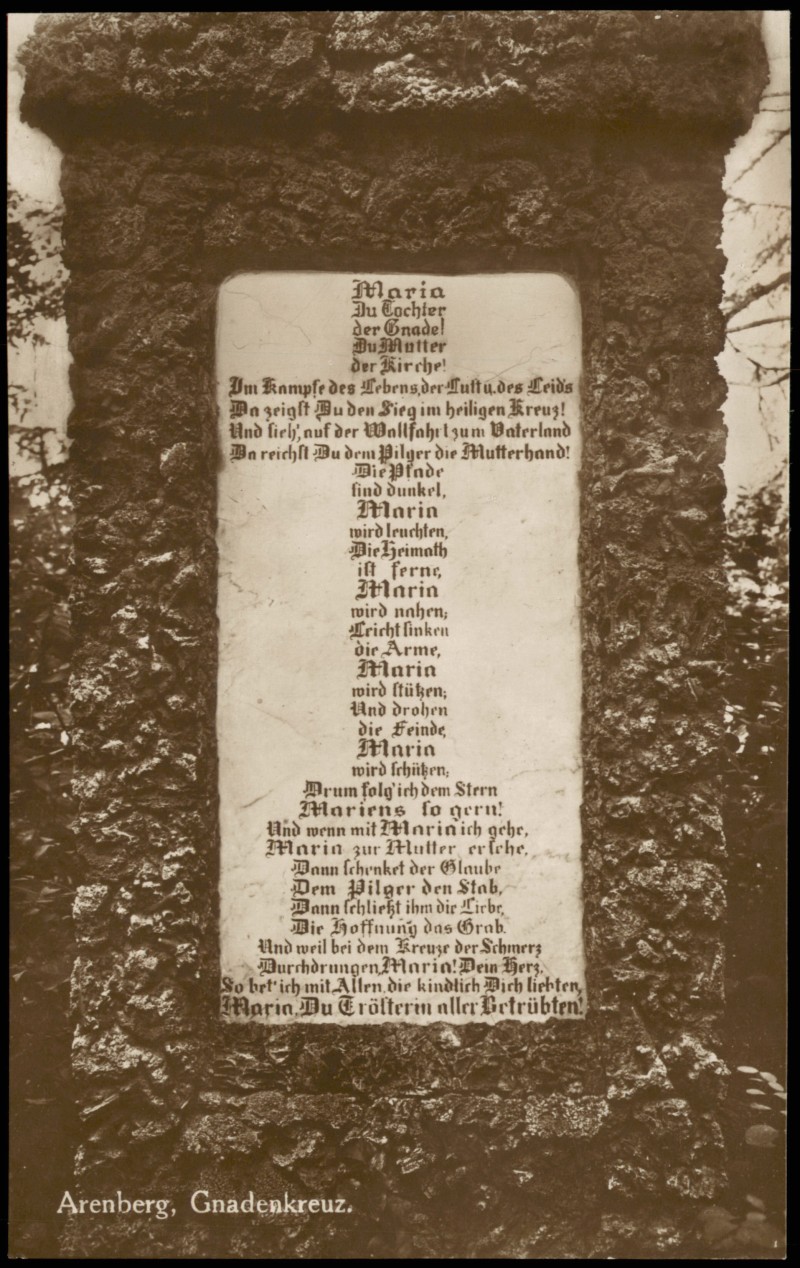 Maria
Du Tochter
der Gnade!
Du Mutter
der Kirche!
Im Kampfe des Lebens, der Lust u. des Leid's
Da zeigst Du den Sieg im heiligen Kreuz!
Und sieh', auf der Wallfahrt zum Vaterland
Da reichst Du dem Pilger die Mutterhand!
Die Pfade
sind dunkel,
Maria
wird leuchten,
Die Heimath
ist ferne,
Maria
wird nahen;
Leicht sinken
die Arme,
Maria
wird stützen;
Und drohen
die Feinde,
Maria
wird schützen;
Drum folg' ich dem Stern
Mariens so gern!
Und wenn mit Maria ich gehe,
Maria zur Mutter ersehe,
Dann schenket der Glaube
Dem Pilger den Stab,
Dann schließt ihm die Liebe,
Die Hoffnung das Grab.
Und weil bei dem Kreuze der Schmerz
Durchdrungen, Maria! Dein Herz,
So bet' ich mit Allen, die kindlich Dich liebten,
Maria, Du Trösterin aller Betrübten!
Arenberg, Gnadenkreuz.